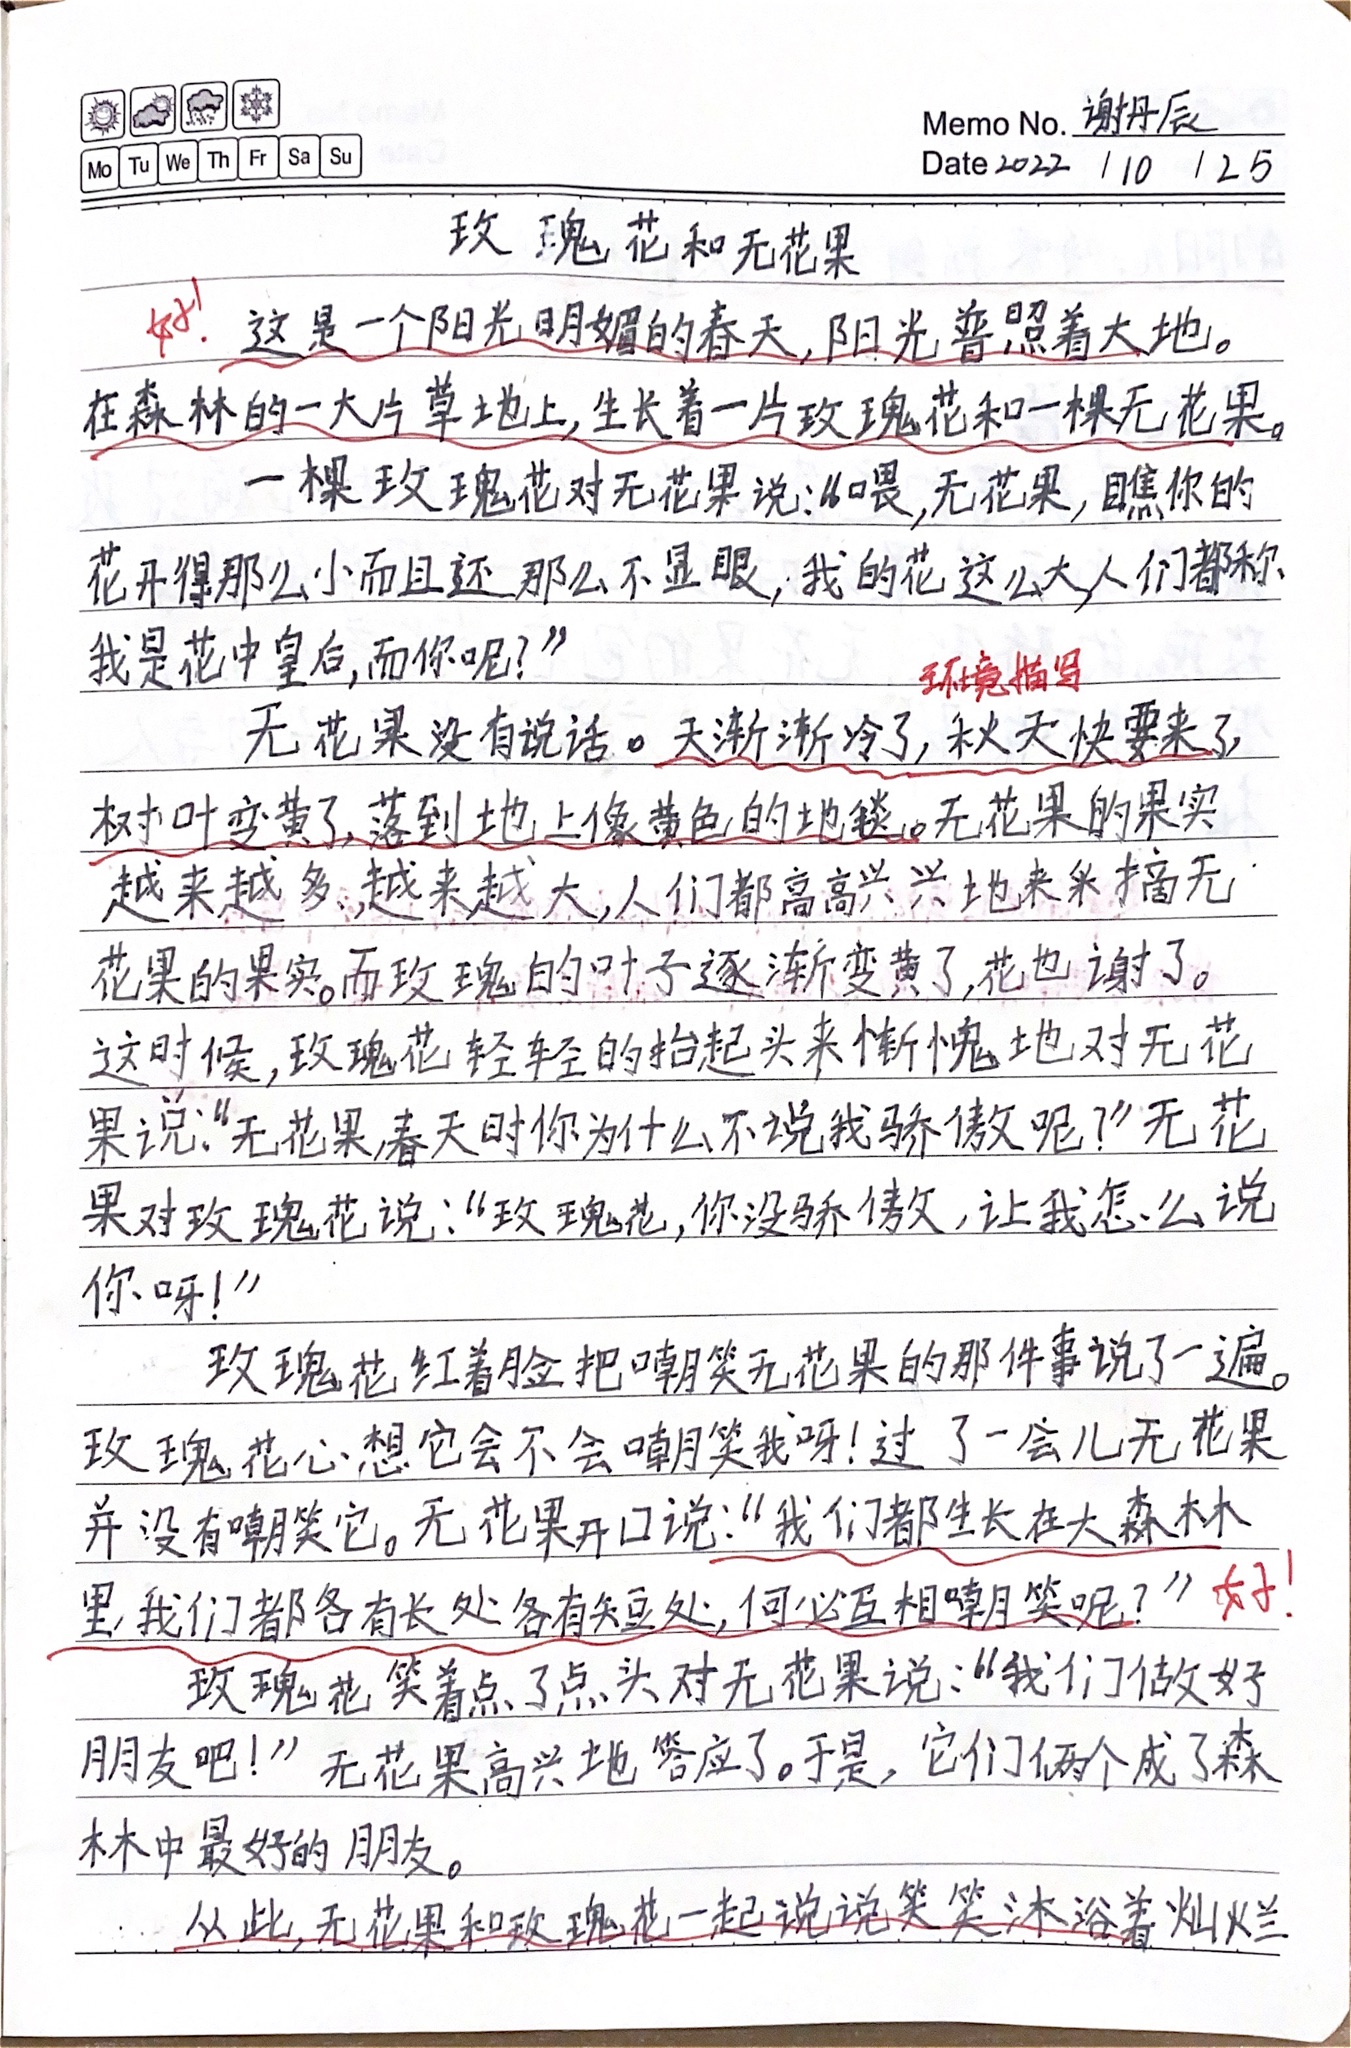 Memo No. 谢丹辰
Mo Tu We Th Fr Sa Su
Date 2022 / 10 / 25
玫瑰花和无花果
好!
这是一个阳光明媚的春天,阳光普照着大地。
在森林的一大片草地上,生长着一片玫瑰花和一棵无花果。
一棵玫瑰花对无花果说:“喂,无花果,瞧你的
花开得那么小而且还那么不显眼,我的花这么大,人们都称
我是花中皇后,而你呢?”
环境描写
无花果没有说话。天渐渐冷了,秋天快要来了,
树叶变黄了,落到地上像黄色的地毯。无花果的果实
越来越多,越来越大,人们都高高兴兴地来采摘无
花果的果实。而玫瑰的叶子逐渐变黄了,花也谢了。
这时候,玫瑰花轻轻的抬起头来惭愧地对无花
果说:“无花果,春天时你为什么不说我骄傲呢?”无花
果对玫瑰花说:“玫瑰花,你没骄傲,让我怎么说
你呀!”
玫瑰花红着脸把嘲笑无花果的那件事说了一遍。
玫瑰花心想它会不会嘲笑我呀!过了一会儿无花果
并没有嘲笑它。无花果开口说:“我们都生长在大森林
里,我们都各有长处各有短处,何必互相嘲笑呢?”
好!
玫瑰花笑着点了点头对无花果说:“我们做好
朋友吧!”无花果高兴地答应了。于是,它们俩个成了森
林中最好的朋友。
从此,无花果和玫瑰花一起说说笑笑沐浴着灿烂